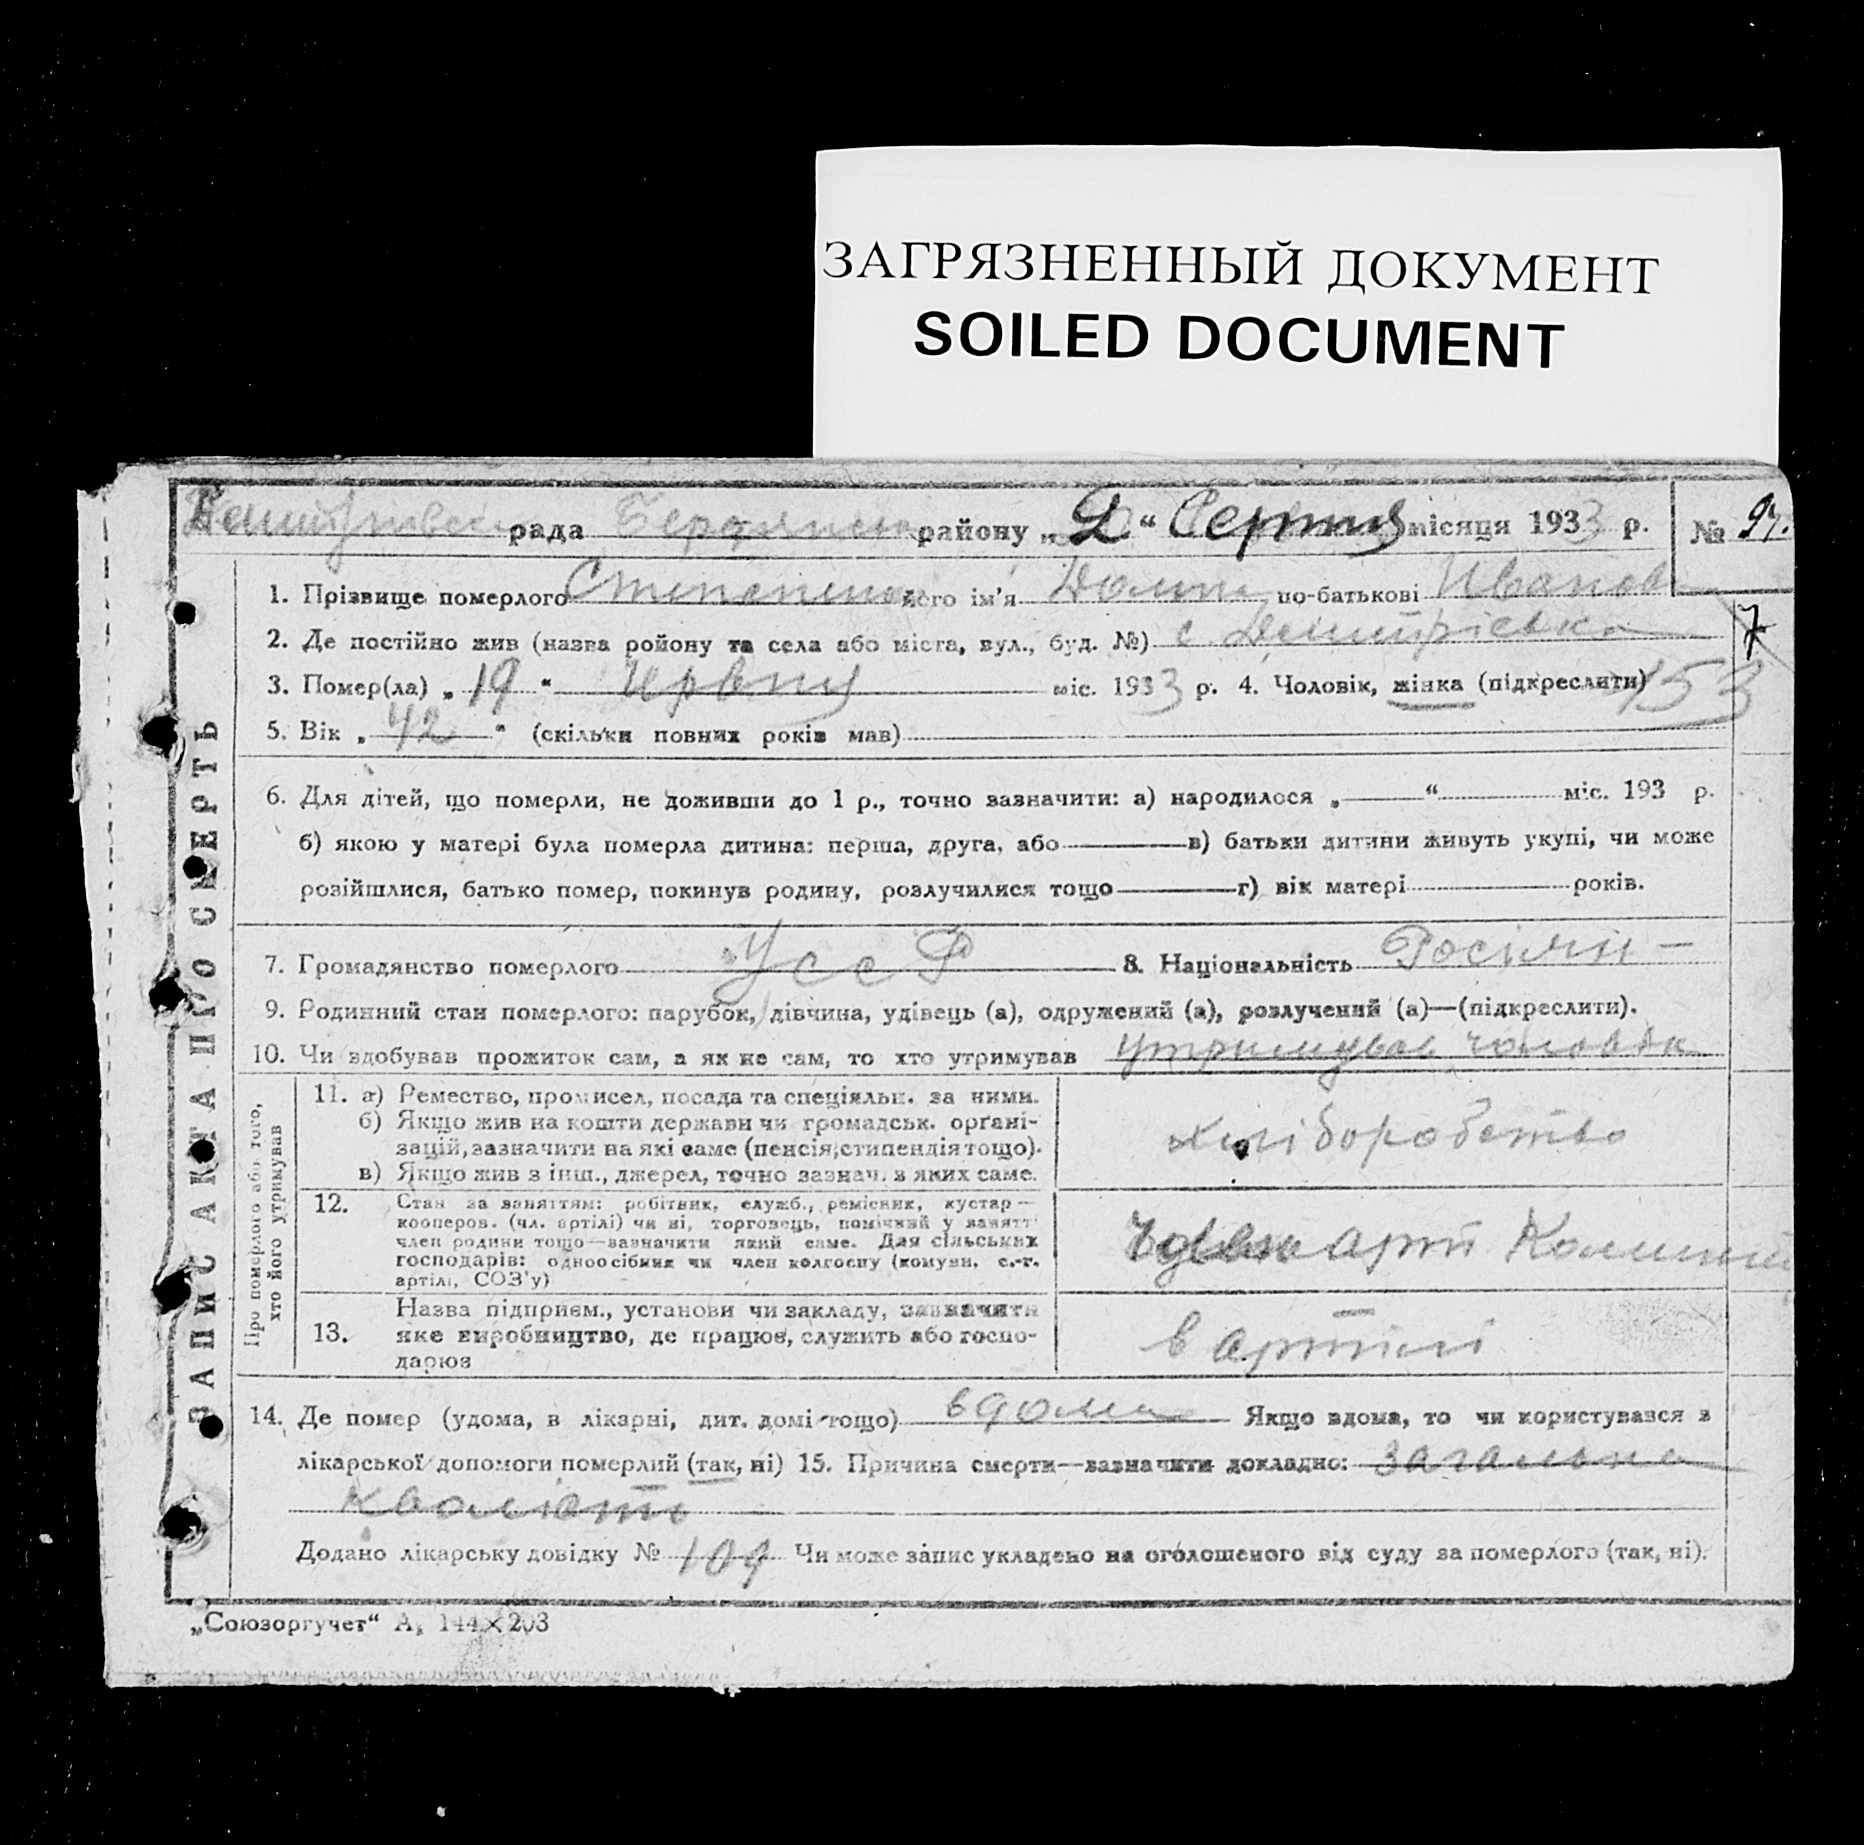 ЗАГРЯЗНЕННЫЙ ДОКУМЕНТ
SOILED DOCUMENT
рада району „ “ Серпня місяця 1933 р. № 97.
1. Прізвище померлого його ім'я по-батькові Иванов
7
2. Де постійно жив (назва ройону та села або міста, вул., буд. №) с Дмитрієвка
3. Помер(ла) „ 19 “ Червня міс. 1933 р. 4. Чоловік, жінка (підкреслити) 153
5. Вік „ 42 “ (скільки повних років мав)
6. Для дітей, що померли, не доживши до 1 р., точно зазначити: а) народилося „ “ міс. 193 р.
б) якою у матері була померла дитина: перша, друга, або в) батьки дитини живуть укупі, чи може
розійшлися, батько помер, покинув родину, розлучилися тощо г) вік матері років.
7. Громадянство померлого УССР 8. Національність Росіян
9. Родинний стан померлого: парубок, дівчина, удівець (а), одружений (а), розлучений (а)—(підкреслити).
10. Чи здобував прожиток сам, а як не сам, то хто утримував утримував чоловік
ЗАПИС АКТА ПРО СМЕРТЬ
Про померлого або того, хто його утримував
11. а) Ремество, промисел, посада та спеціяльн. за ними.
б) Якщо жив на кошти держави чи громадськ. орґані-
зацій, зазначити на які саме (пенсія, стипендія тощо).
в) Якщо жив з інш., джерел, точно зазнач. з яких саме.
хліборобство
12. Стан за заняттям: робітник, служб., ремісник, кустар—
кооперов. (чл. артілі) чи ні, торговець, помічний у занятт
член родини тощо—зазначити який саме. Для сільських
господарів: одноосібник чи член колгоспу (комуни, с.-г.
артілі, СОЗ'у)
член арті
13. Назва підприєм., установи чи закладу, зазначити
яке виробництво, де працює, служить або госпо-
дарює
в артілі
14. Де помер (удома, в лікарні, дит. домі тощо) вдома Якщо вдома, то чи користувався з
лікарської допомоги померлий (так, ні) 15. Причина смерти—зазначити докладно: загальна
Додано лікарську довідку № 109 Чи може запис укладено на оголошеного від суду за померлого (так, ні).
„Союзоргучет“ А, 144×203